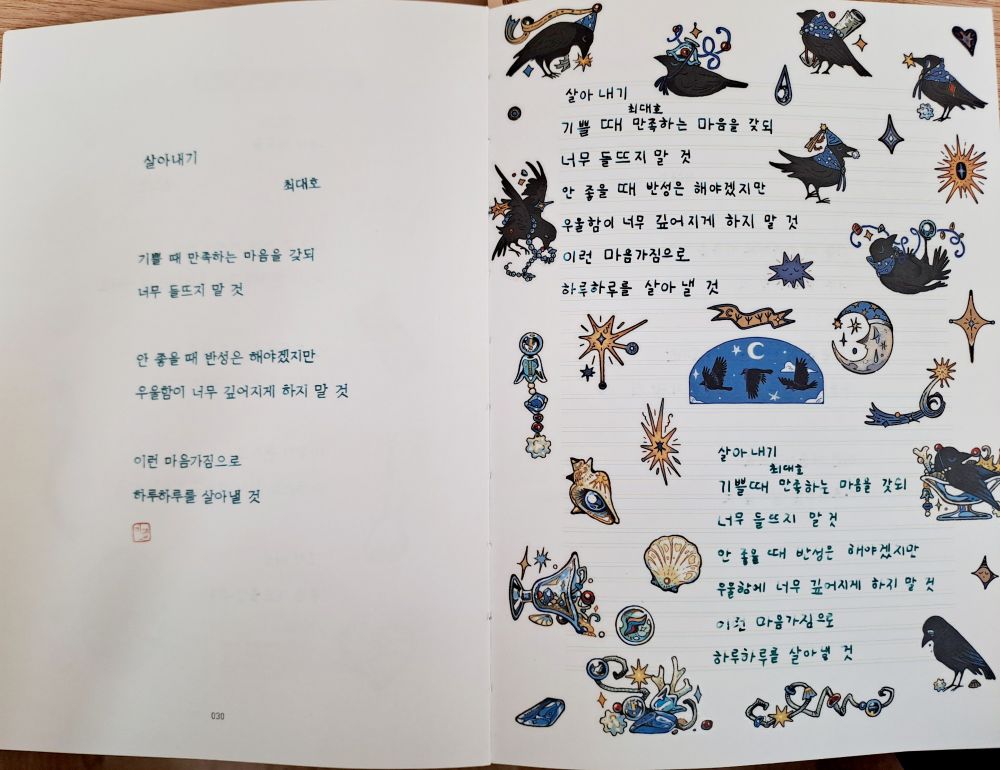 살아내기
최대호
기쁠 때 만족하는 마음을 갖되
너무 들뜨지 말 것
안 좋을 때 반성은 해야겠지만
우울함이 너무 깊어지게 하지 말 것
이런 마음가짐으로
하루하루를 살아낼 것
030
살아 내기
최대호
기쁠 때 만족하는 마음을 갖되
너무 들뜨지 말 것
안 좋을 때 반성은 해야겠지만
우울함이 너무 깊어지게 하지 말 것
이런 마음가짐으로
하루하루를 살아 낼 것
살아내기
최대호
기쁠때 만족하는 마음을 갖되
너무 들뜨지 말것
안 좋을 때 반성은 해야겠지만
우울함에 너무 깊어지게 하지 말 것
이런 마음가짐으로
하루하루를 살아낼 것